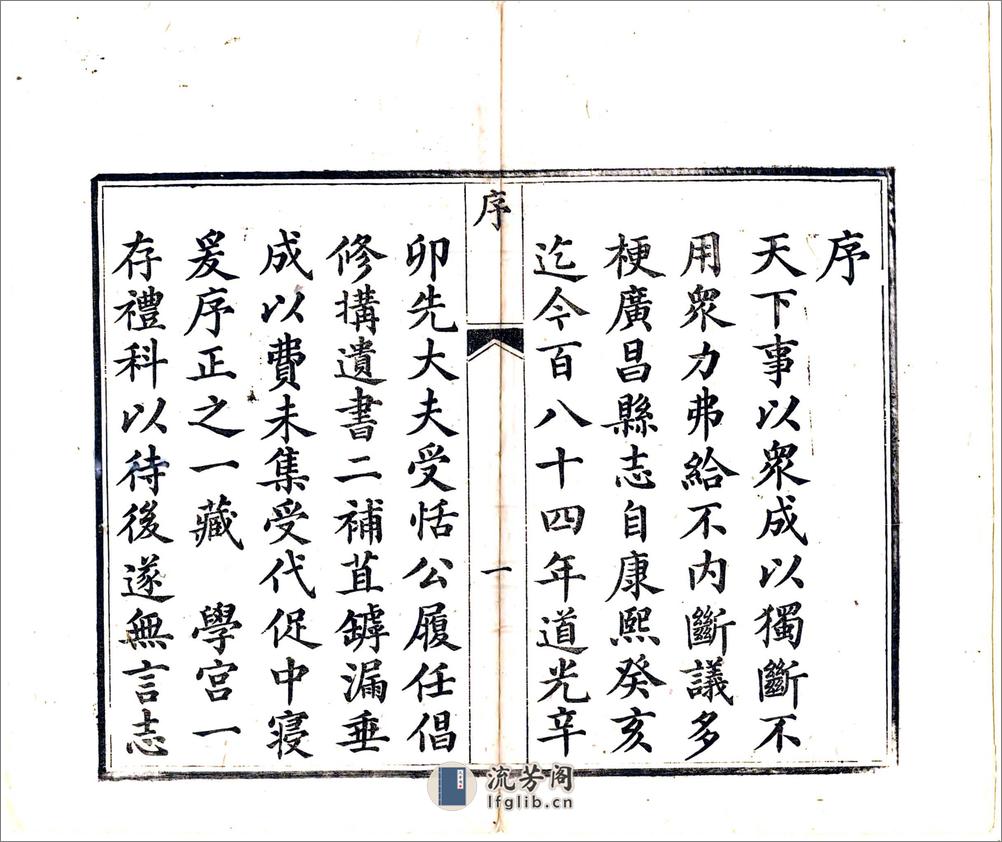 序
天下事以衆成以獨斷不
用衆力弗給不内斷議多
梗廣昌縣志自康熙癸亥
迄今百八十四年道光辛
序
一
卯先大夫受恬公履任倡
修搆遺書二補苴罅漏垂
成以費未集受代促中寝
爰序正之一藏 學宮一
存禮科以待後遂無言志
流芳阁
lfglib.cn